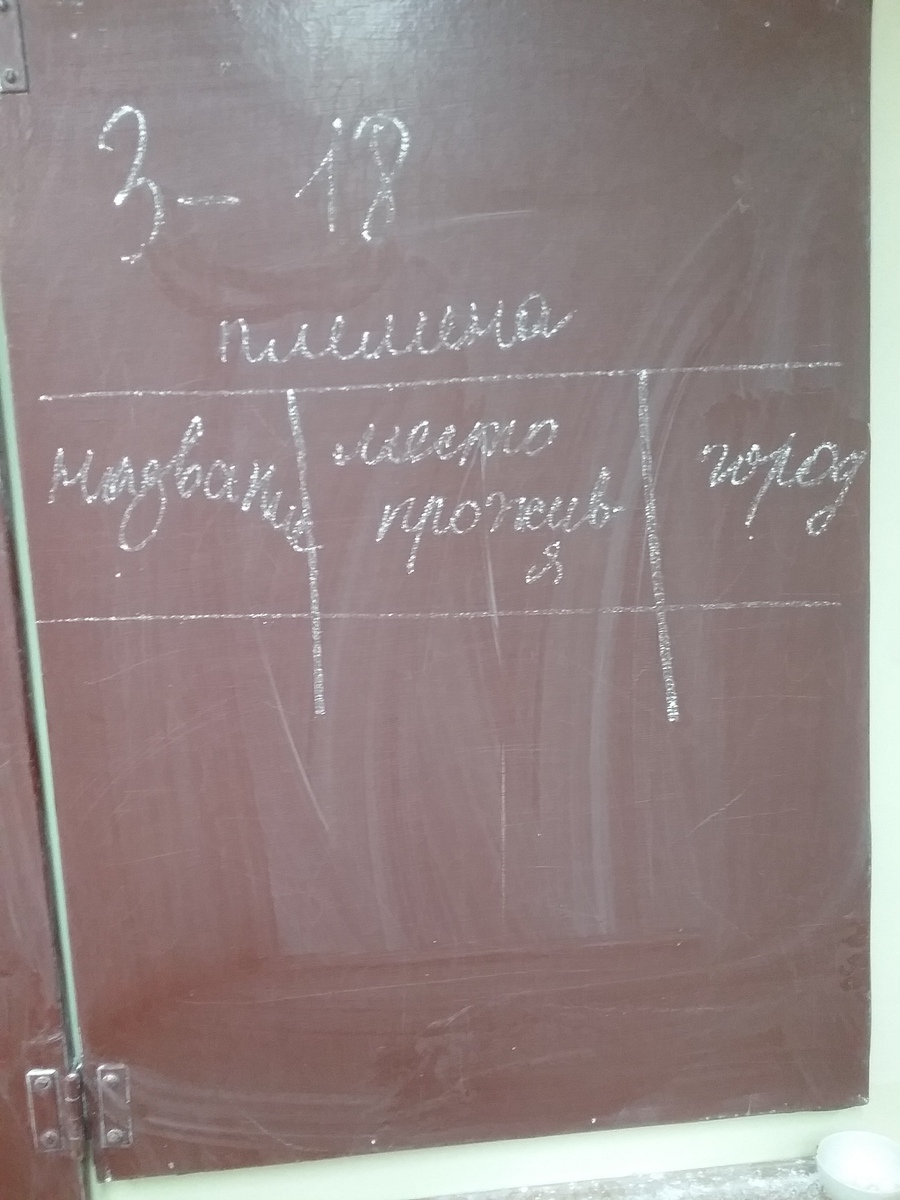 3- 18
племена
название
место
прожив
я
город